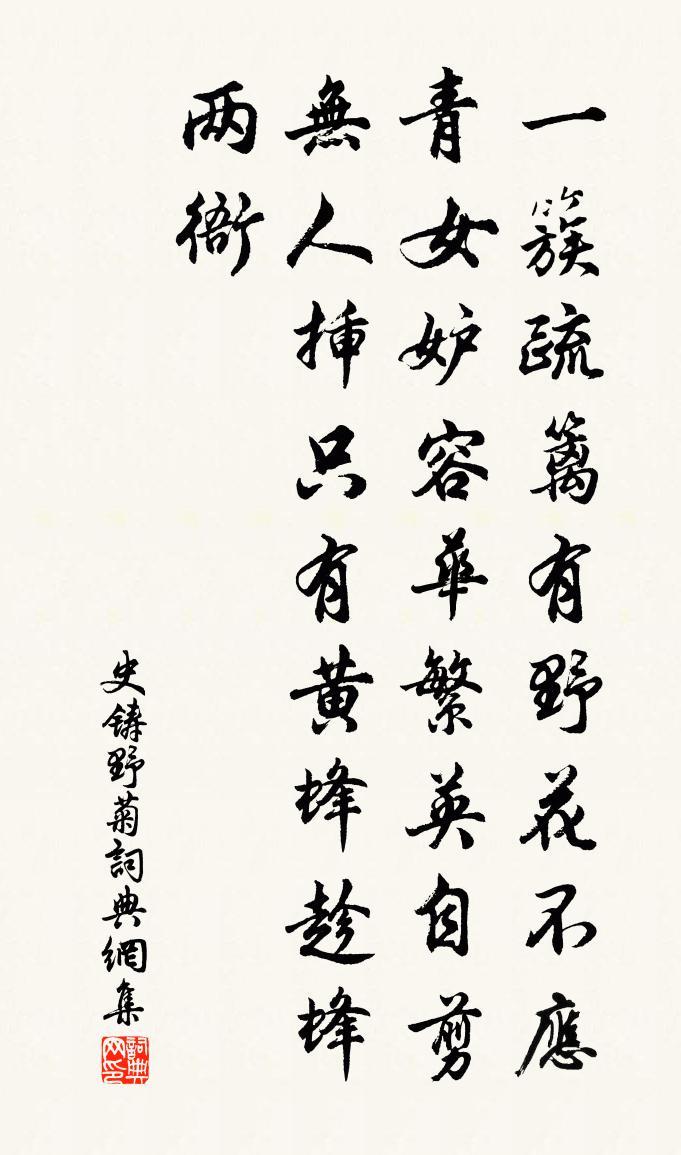 一簇疏籬有野花不應
青女妒容華繁英自剪
無人插只有黃蜂趁蜂
两衙
史鑄野菊詞典網集
詞典网印